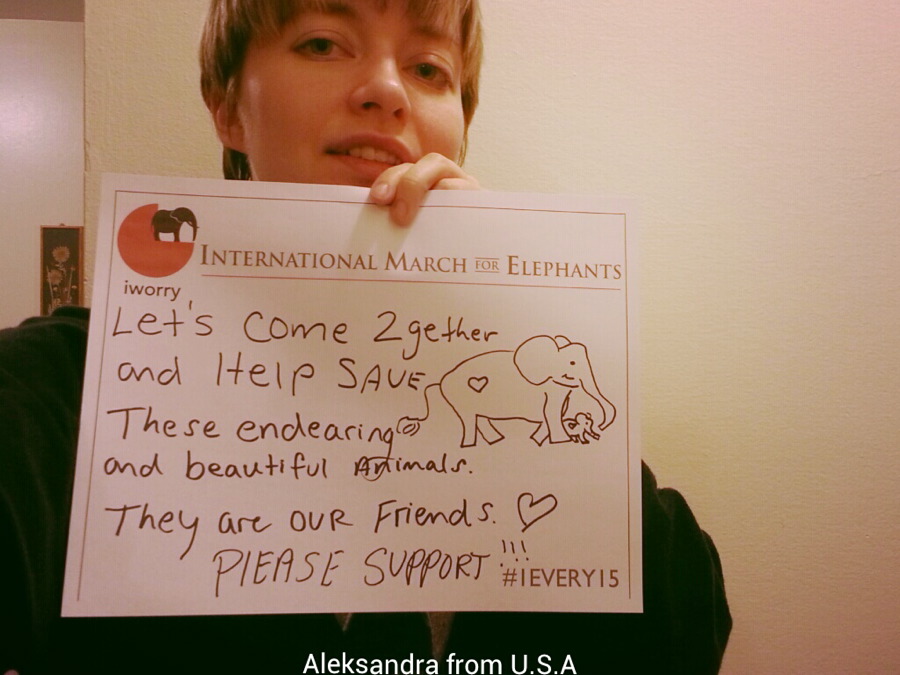 INTERNATIONAL MARCH FOR ELEPHANTS
iworry
Let's come 2gether
and Help SAVE
These endearing
and beautiful Animals.
They are OUR Friends.
PLEASE SUPPORT!!!
#1EVERY15
Aleksandra from U.S.A